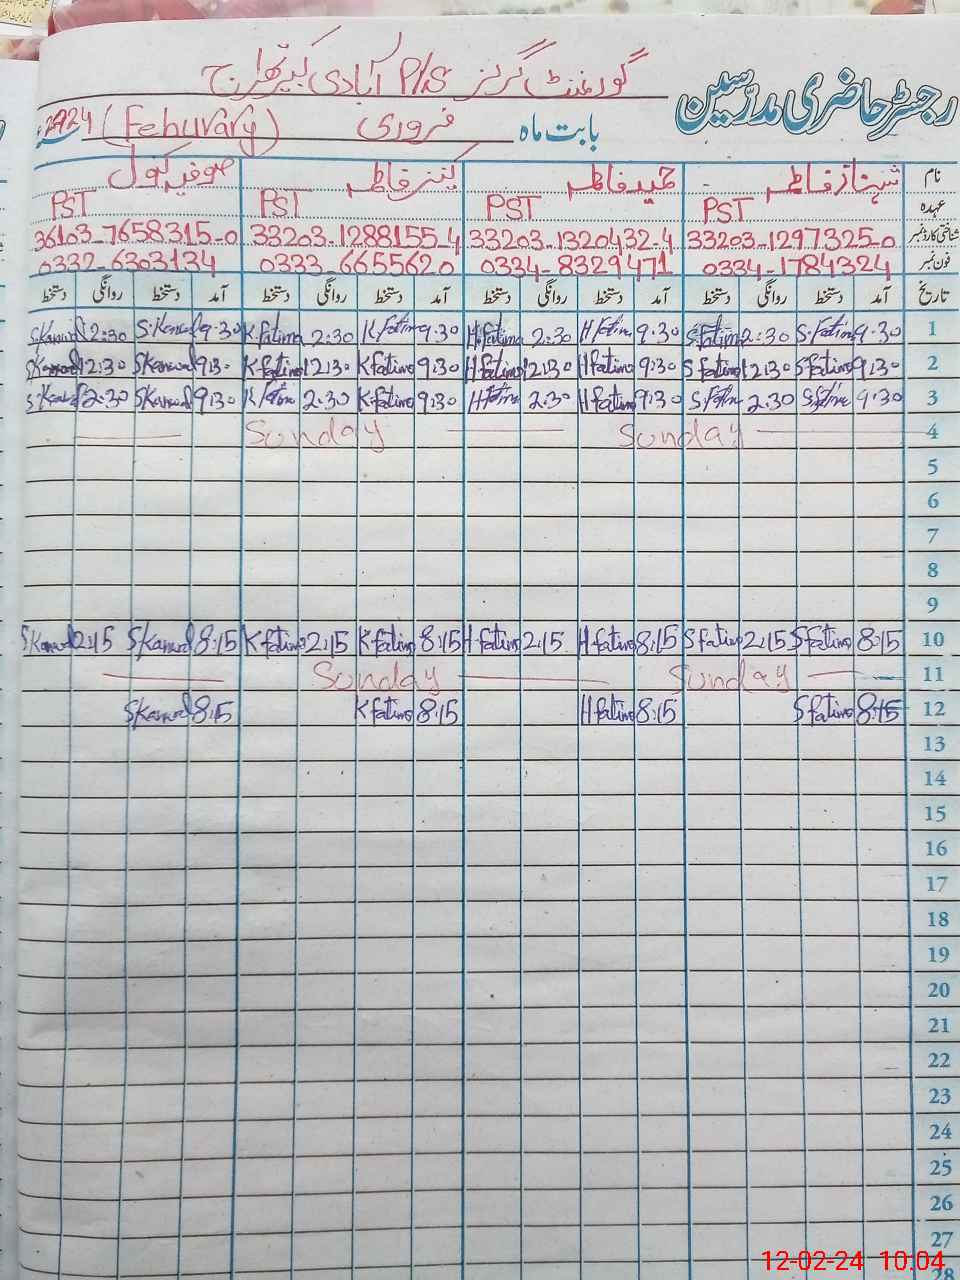 رجسٹر حاضری مدرسین
گورنمنٹ گرلز P/S آبادی
بابت ماہ فروری (Febuvary) 2024
نام شہناز فاطمہ حمید فاطمہ کنیز فاطمہ صوفیہ کنول
عہدہ PST PST PST PST
شناختی کارڈ نمبر 33203-1297325-0 33203-1320432-4 33203-1288155-4 36103-7658315-0
فون نمبر 0334-1784324 0334-8329471 0333-6655620 0332-6303134
تاریخ آمد دستخط روانگی دستخط آمد دستخط روانگی دستخط آمد دستخط روانگی دستخط آمد دستخط روانگی دستخط
1 9:30 S.Fatima 2:30 S.fatima 9:30 H.fatima 2:30 H.fatima 9.30 K.fatima 2:30 K.fatima 9.30 S.Kanwal 2:30 S.Kanwal
2 9:30 S fatima 12:30 S fatima 9:30 H fatima 12:30 H fatima 9:30 K fatima 12:30 K fatima 9:30 S Kanwal 12:30 S Kanwal
3 9:30 S fatima 2:30 S fatima 9:30 H fatima 2:30 H fatima 9:30 K fatima 2:30 K fatima 9:30 S Kanwal 2:30 S Kanwal
4 Sunday Sunday
5
6
7
8
9
10 8:15 S fatima 2:15 S fatima 8:15 H fatima 2:15 H fatima 8:15 K fatima 2:15 K fatima 8:15 S Kanwal 2:15 S Kanwal
11 Sunday Sunday
12 8:15 S fatima 8:15 H fatima 8:15 K fatima 8:15 S Kanwal
13
14
15
16
17
18
19
20
21
22
23
24
25
26
27
28
12-02-24 10:04